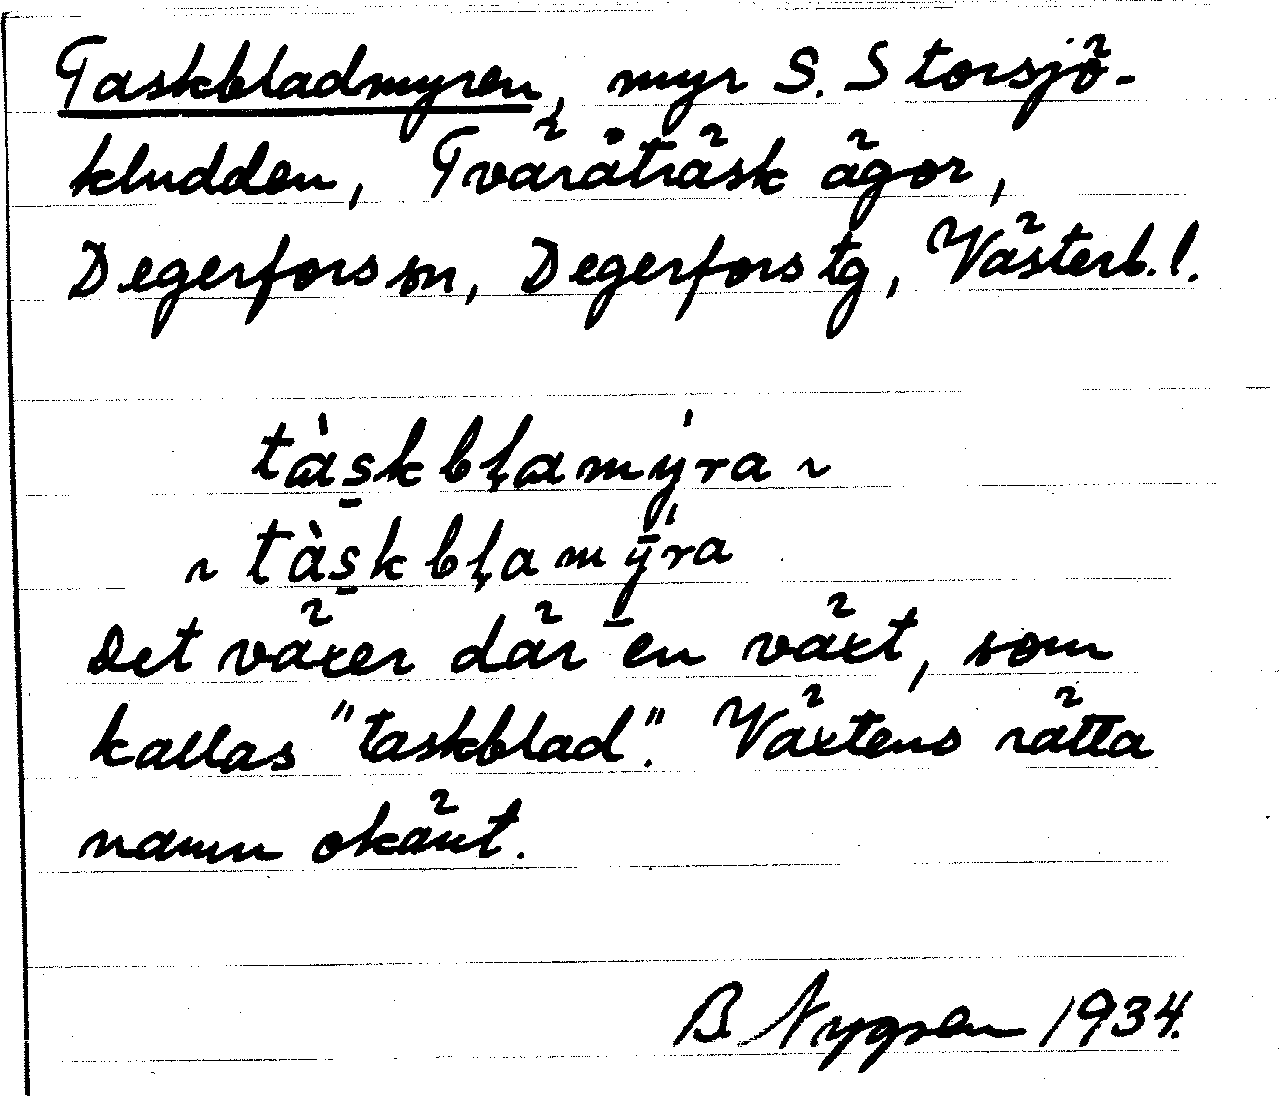 Taskbladmyren, myr S. Storsjö-
kludden, Tväråträsk ägor,
Degerfors sn, Degerfors tg, Västerb. l.
tàskbḷamýra ~
~ tàskbḷamȳ́ra
Det växer där en växt, som
kallas "taskblad". Växtens rätta
namn okänt.
B. Nygren 1934.